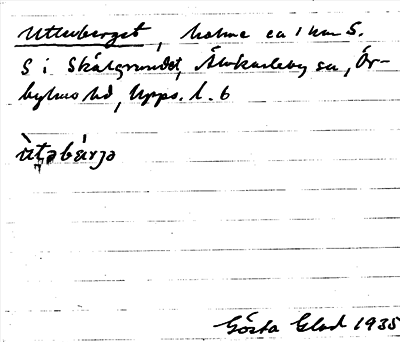 Utterberget, holme ca 1 km S.
S i Skålgrundet, Älvkarleby sn, Ör-
byhus hd, Upps. l. b
ùtəbærjə
Gösta Glad 1935